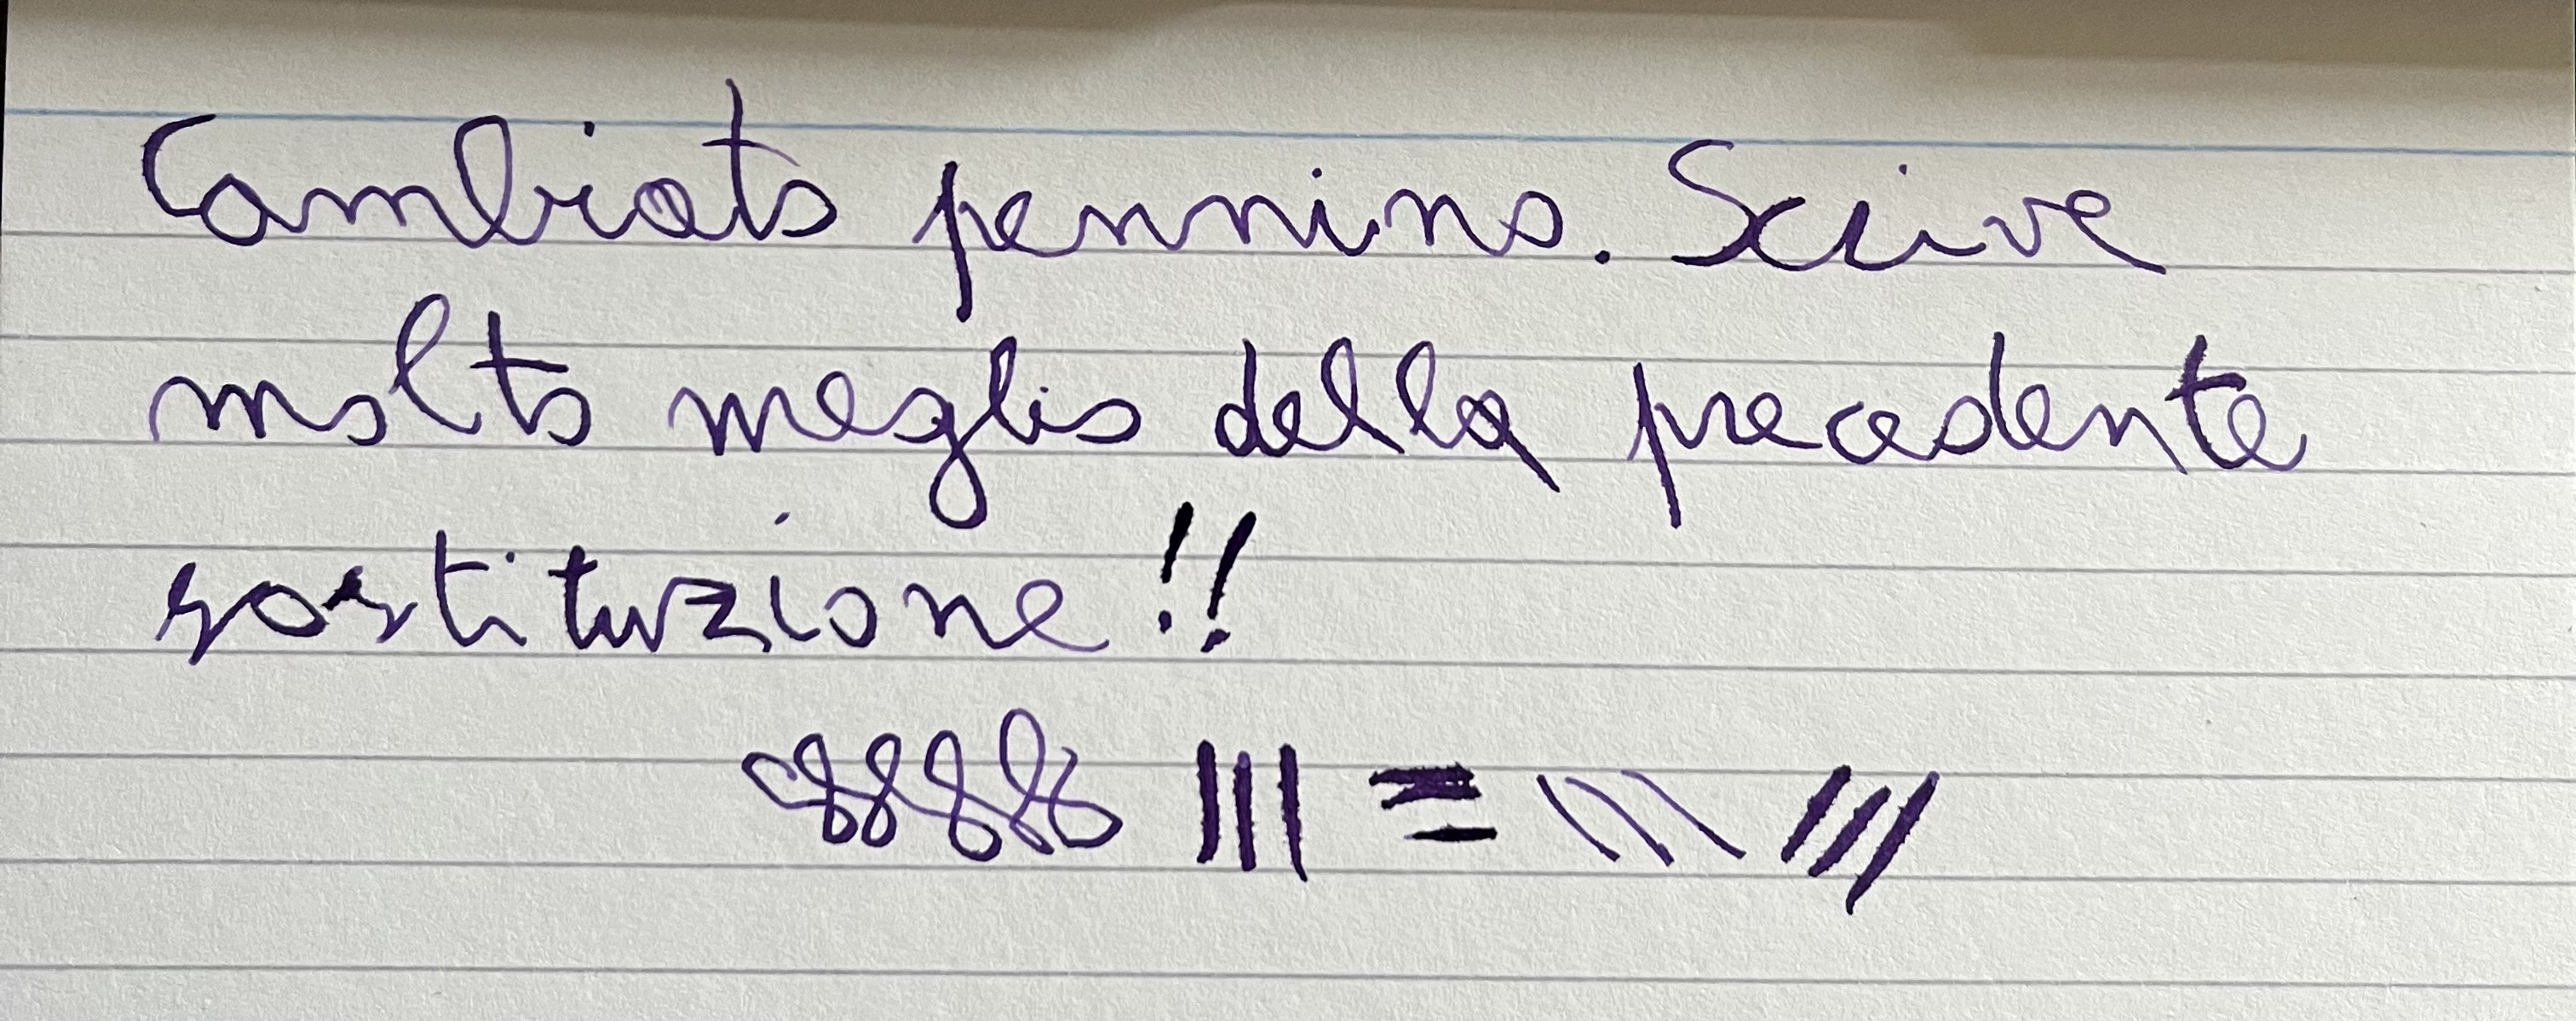 Cambiato pennino. Scrive
molto meglio della precedente
sostituzione!!